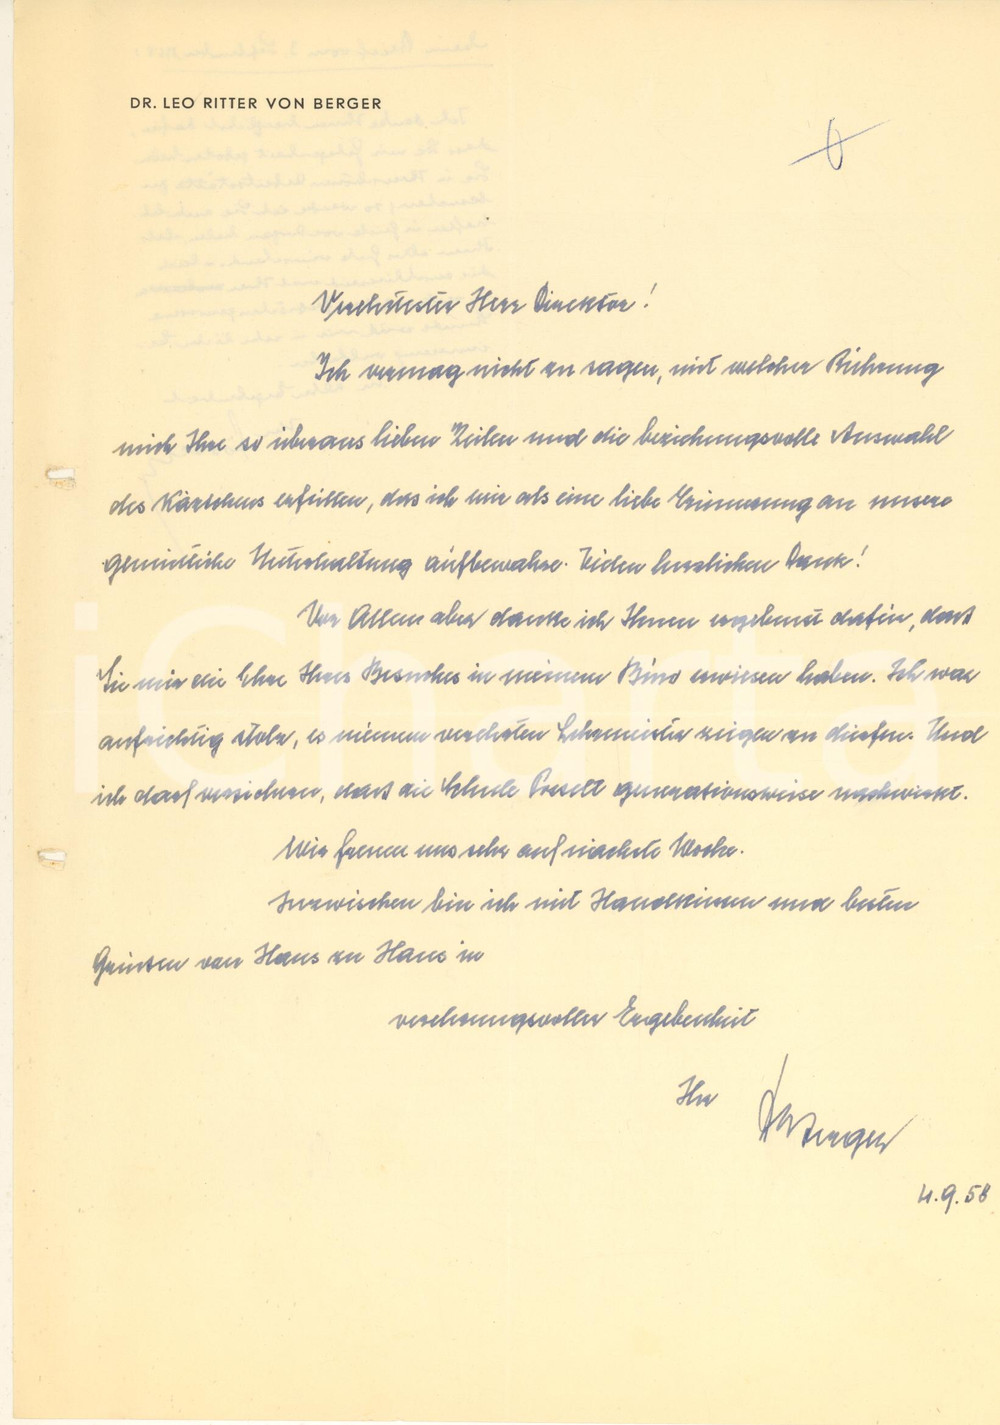 DR. LEO RITTER VON BERGER
Verehrtester Herr Direktor!
Ich vermag nicht zu sagen, mit welcher Rührung
mich Ihre so überaus lieben Zeilen und die beziehungsvolle Auswahl
des Kärtchens erfüllten, das ich mir als eine liebe Erinnerung an unsere
gemütliche Unterhaltung aufbewahre. herzlichen Dank!
Vor Allem aber danke ich Ihnen ergebenst dafür, dass
Sie mir die Ehre Ihres Besuches in meinem Büro erwiesen haben. Ich war
aufrichtig stolz, es meinem verehrten Lehrmeister zeigen zu dürfen. Und
ich darf versichern, dass die Schule generationsweise nachwirkt.
Wir freuen uns sehr auf nächste Woche.
Inzwischen bin ich mit Handküssen und besten
Grüssen von Haus zu Haus in
verehrungsvoller Ergebenheit
Ihr
Berger
4.9.58
iCharta